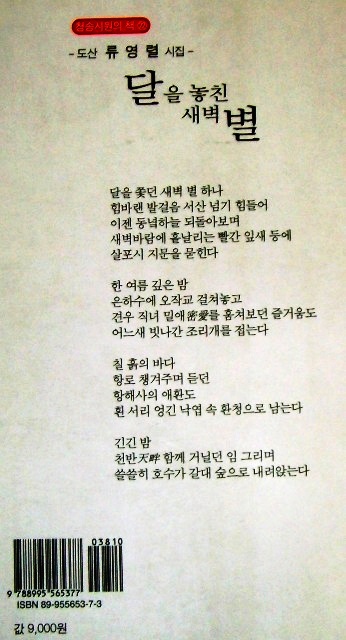 청송시원의 책 ㉗
- 도산 류영렬 시집 -
달을 놓친
새벽 별
달을 쫓던 새벽 별 하나
힘바랜 발걸음 서산 넘기 힘들어
이젠 동녘하늘 되돌아보며
새벽바람에 흩날리는 빨간 잎새 등에
살포시 지문을 묻힌다
한 여름 깊은 밤
은하수에 오작교 걸쳐놓고
견우 직녀 밀애密愛를 훔쳐보던 즐거움도
어느새 빗나간 조리개를 접는다
칠 흙의 바다
항로 챙겨주며 듣던
항해사의 애환도
흰 서리 엉긴 낙엽 속 환청으로 남는다
긴긴 밤
천반天畔 함께 거닐던 임 그리며
쓸쓸히 호수가 갈대 숲으로 내려앉는다
03810
9 788995 565377
ISBN 89-955653-7-3
값 9,000원